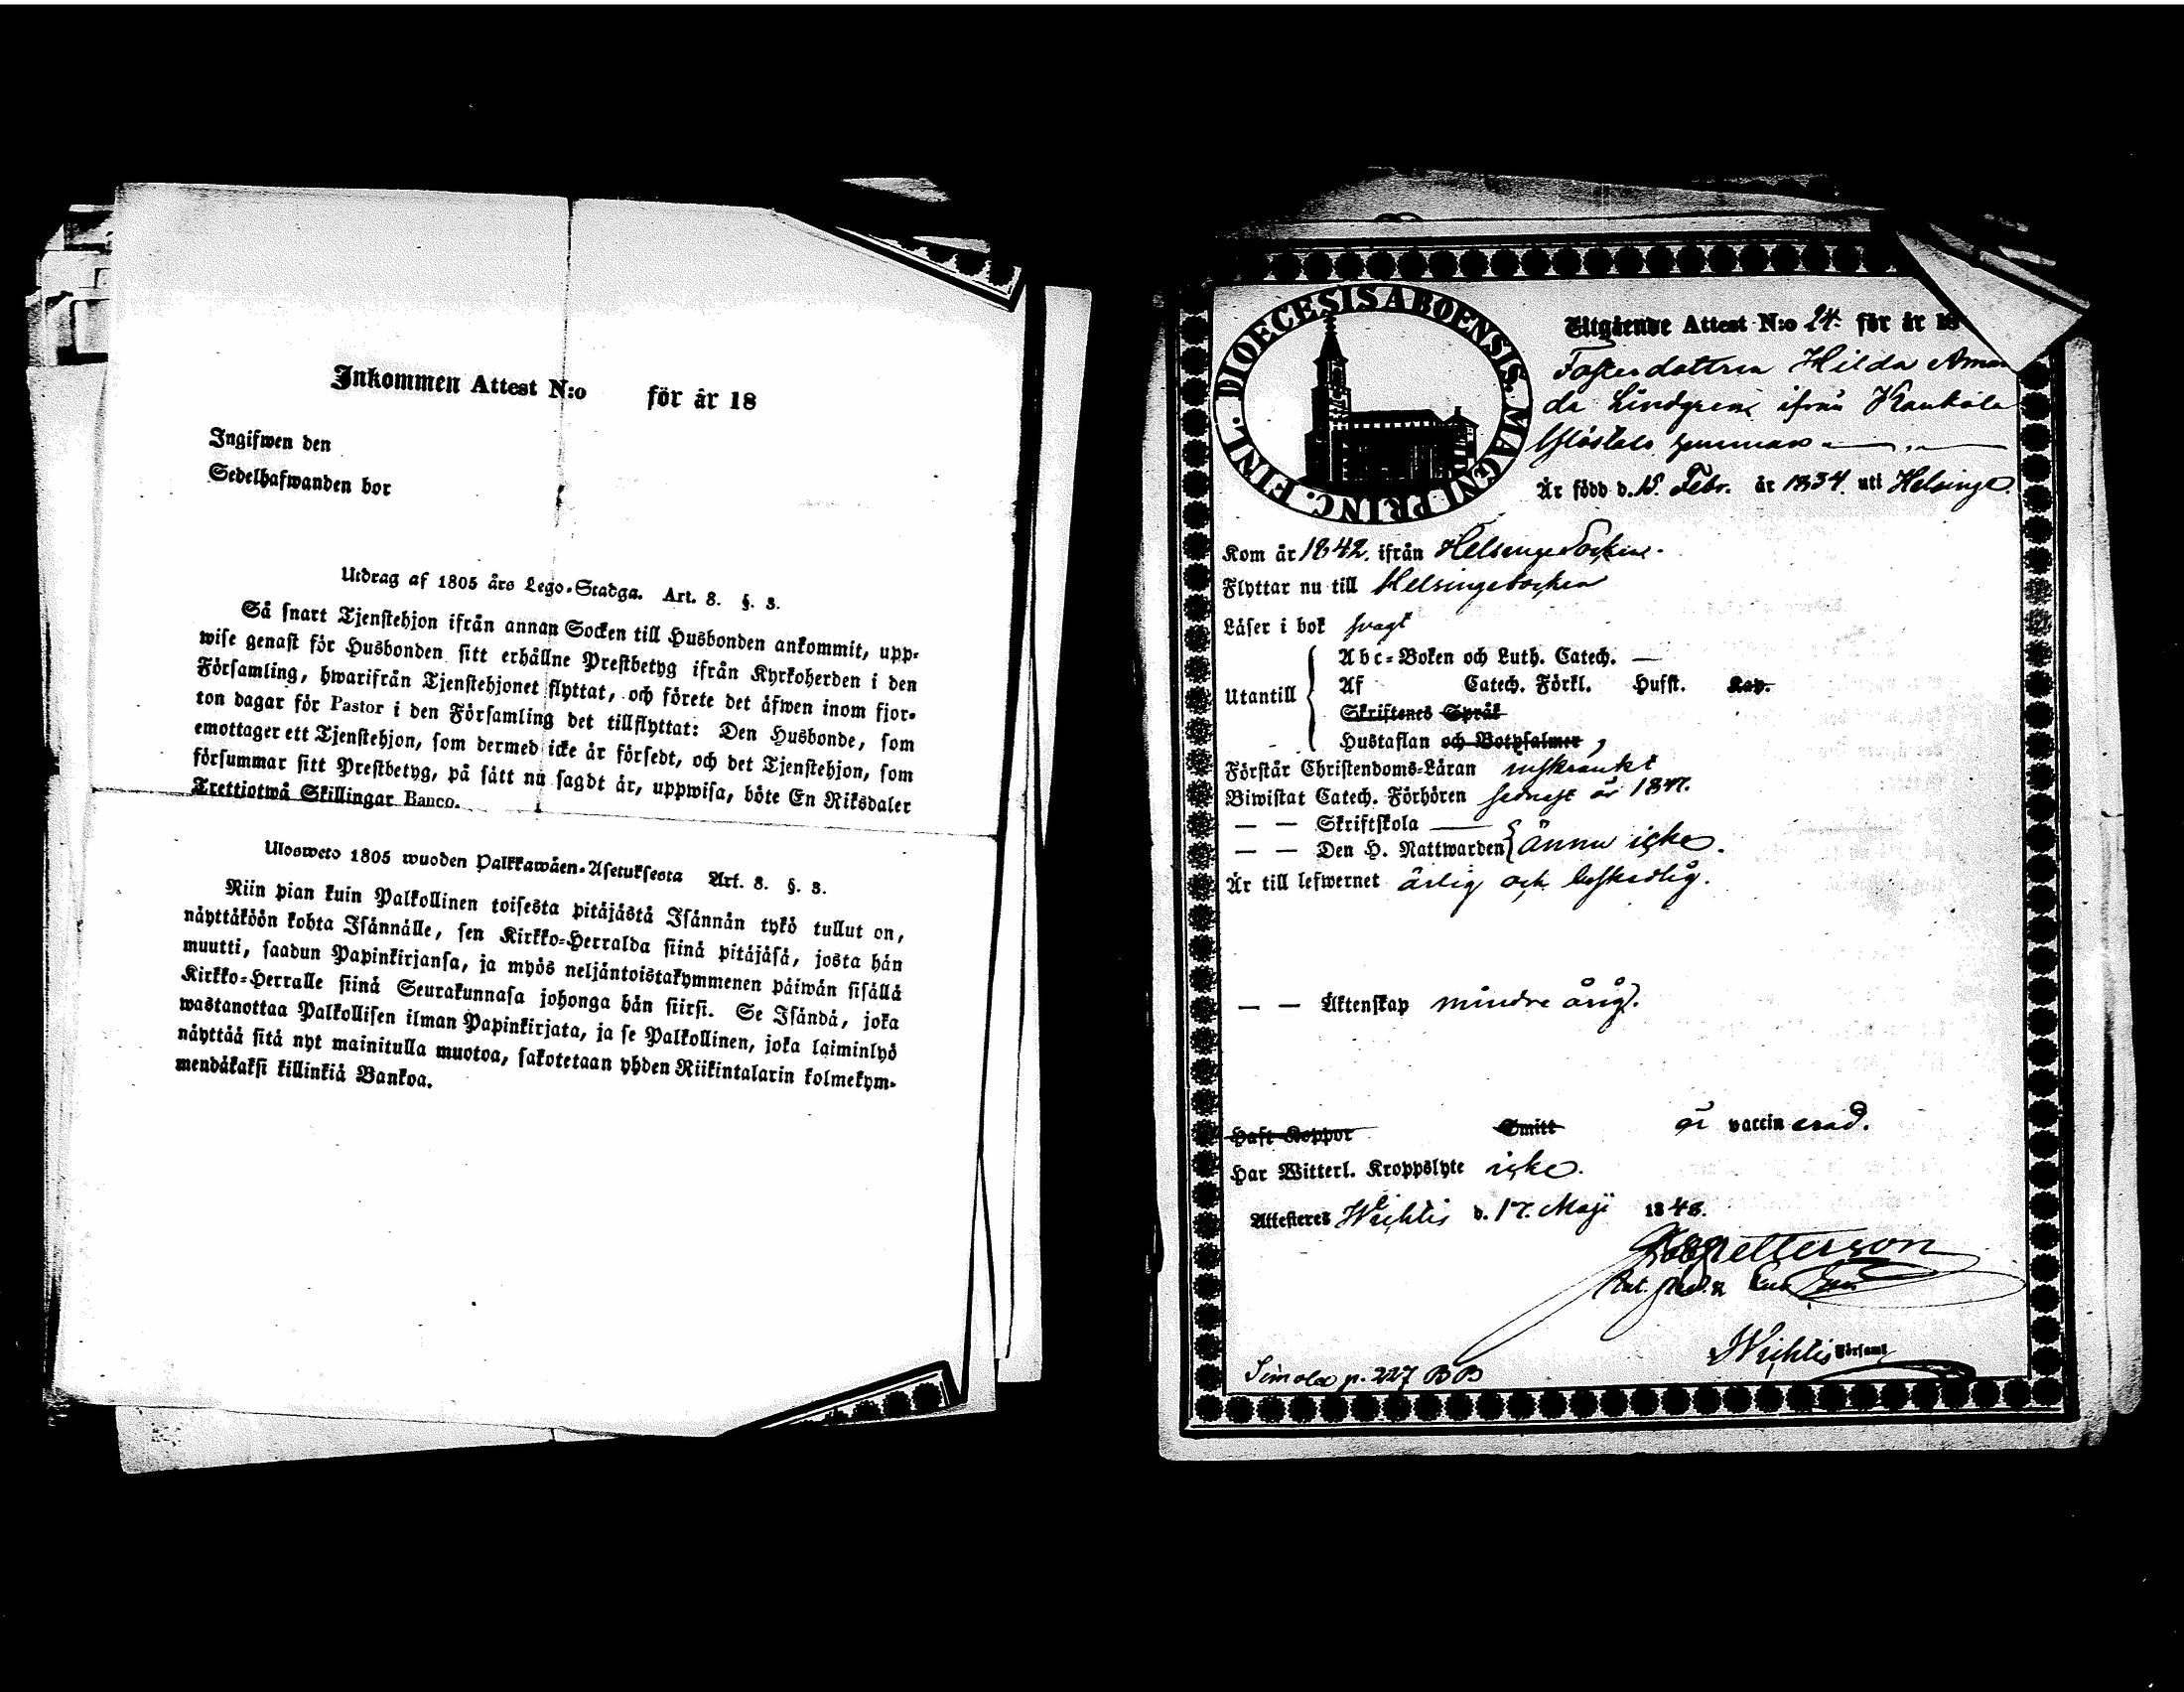 Inkommen Attest N:o för år 18
Ingifwen den
Sedelhafwanden bor
Utdrag af 1805 års Lego-Stadga. Art. 8. §. 3.
Så snart Tjenstehjon ifrån annan Socken till Husbonden ankommit, upp-
wise genast för Husbonden sitt erhållne Prestbetyg ifrån Kyrkoherden i den
Församling, hwarifrån Tjenstehjonet flyttat, och förete det äfwen inom fjor-
ton dagar för Pastor i den Församling det tillflyttat: Den Husbonde, som
emottager ett Tjenstehjon, som dermed icke är försedt, och det Tjenstehjon, som
försummar sitt Prestbetyg, på sätt nu sagdt är, uppwisa, böte En Riksdaler
Trettiotwå Skillingar Banco.
Ulosweto 1805 wuoden Palkkawäen-Asetuksesta Art. 8. §. 3.
Niin pian kuin Palkollinen toisesta pitäjästä Isännän tykö tullut on,
näyttäköön kohta Isännälle, sen Kirkko-Herralda siinä pitäjäsä, josta hän
muutti, saadun Papinkirjansa, ja myös neljäntoistakymmenen päiwän sisällä
Kirkko-Herralle siinä Seurakunnasa johonga hän siirsi. Se Isändä, joka
wastanottaa Palkollisen ilman Papinkirjata, ja se Palkollinen, joka laiminlyö
näyttää sitä nyt mainitulla muotoa, sakotetaan yhden Riikintalarin kolmekym-
mendäkaksi killinkiä Bankoa.
DIOECESIS ABOENSIS. MAGNI PRINC. FINL.
Utgående Attest N:o 24. för år 18
Fosterdottren Hilda Aman
da Lindgren ifrån Kankala
Är född d. 15. Febr. år 1834. uti Helsinge.
Kom år 1842. ifrån Helsinge Socken.
Flyttar nu till Helsinge Socken
Läser i bok svagt
Abc-Boken och Luth. Catech. —
Utantill Af Catech. Förkl. Hufst. Kap.
Skriftenes Språk
Hustaflan och Botpsalmer,
Förstår Christendoms-Läran inskränkt
Biwistat Catech. Förhören senast år 1847.
— — Skriftskola —
— — Den H. Nattwarden ännu icke.
Är till lefwernet ärlig och beskedlig.
— — Äktenskap mindre årig.
Haft Koppor Smitt är vaccinerad.
Har Witterl. Kroppslyte icke.
Attesteres Wichtis d. 17. Maji 1848.
Petterson
Wichtis Församl.
Simola p. 227 BB